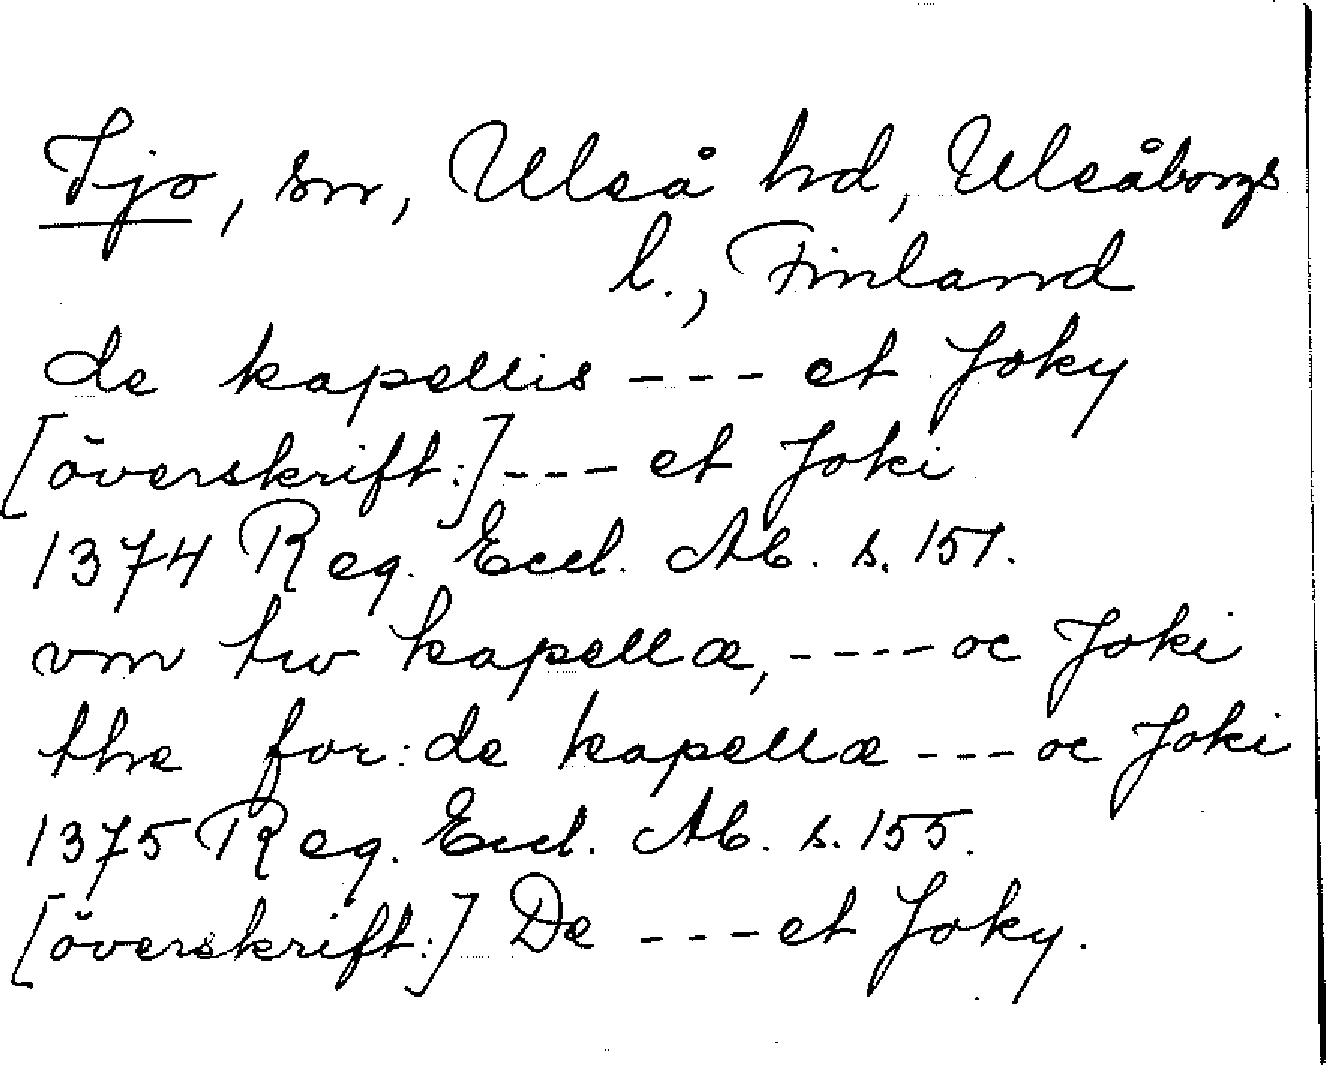 Ijo, sn, Uleå hd, Uleåborgs
l., Finland
de kapellis --- et Joky
[överskrift:] --- et Joki
1374 Reg. Eccl. Ab. s. 151.
vm tw kapellæ, ---- oc Joki
the for:de kapellæ --- oc Joki
1375 Reg. Eccl. Ab. s. 155.
[överskrift:] De --- et Joky.